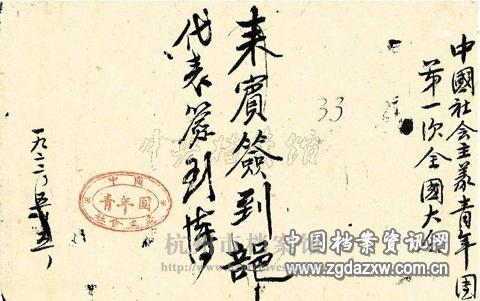 中國社会主義青年團
第一次全國大会
33
來賓簽到部
代表簽到簿
一九二二、五、五、
中國
青年團
社会主義
中国档案资讯网
www.zgdazxw.com.cn